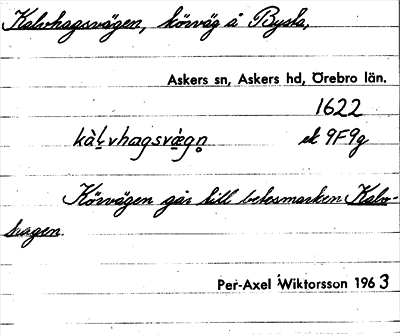 Kalvhagsvägen, körväg å Bysta,
Askers sn, Askers hd, Örebro län.
1622
kàl̥vhagsvæ̀gn̥ ek 9F9g
Körvägen går till betesmarken Kalv-
hagen.
Per-Axel Wiktorsson 1963